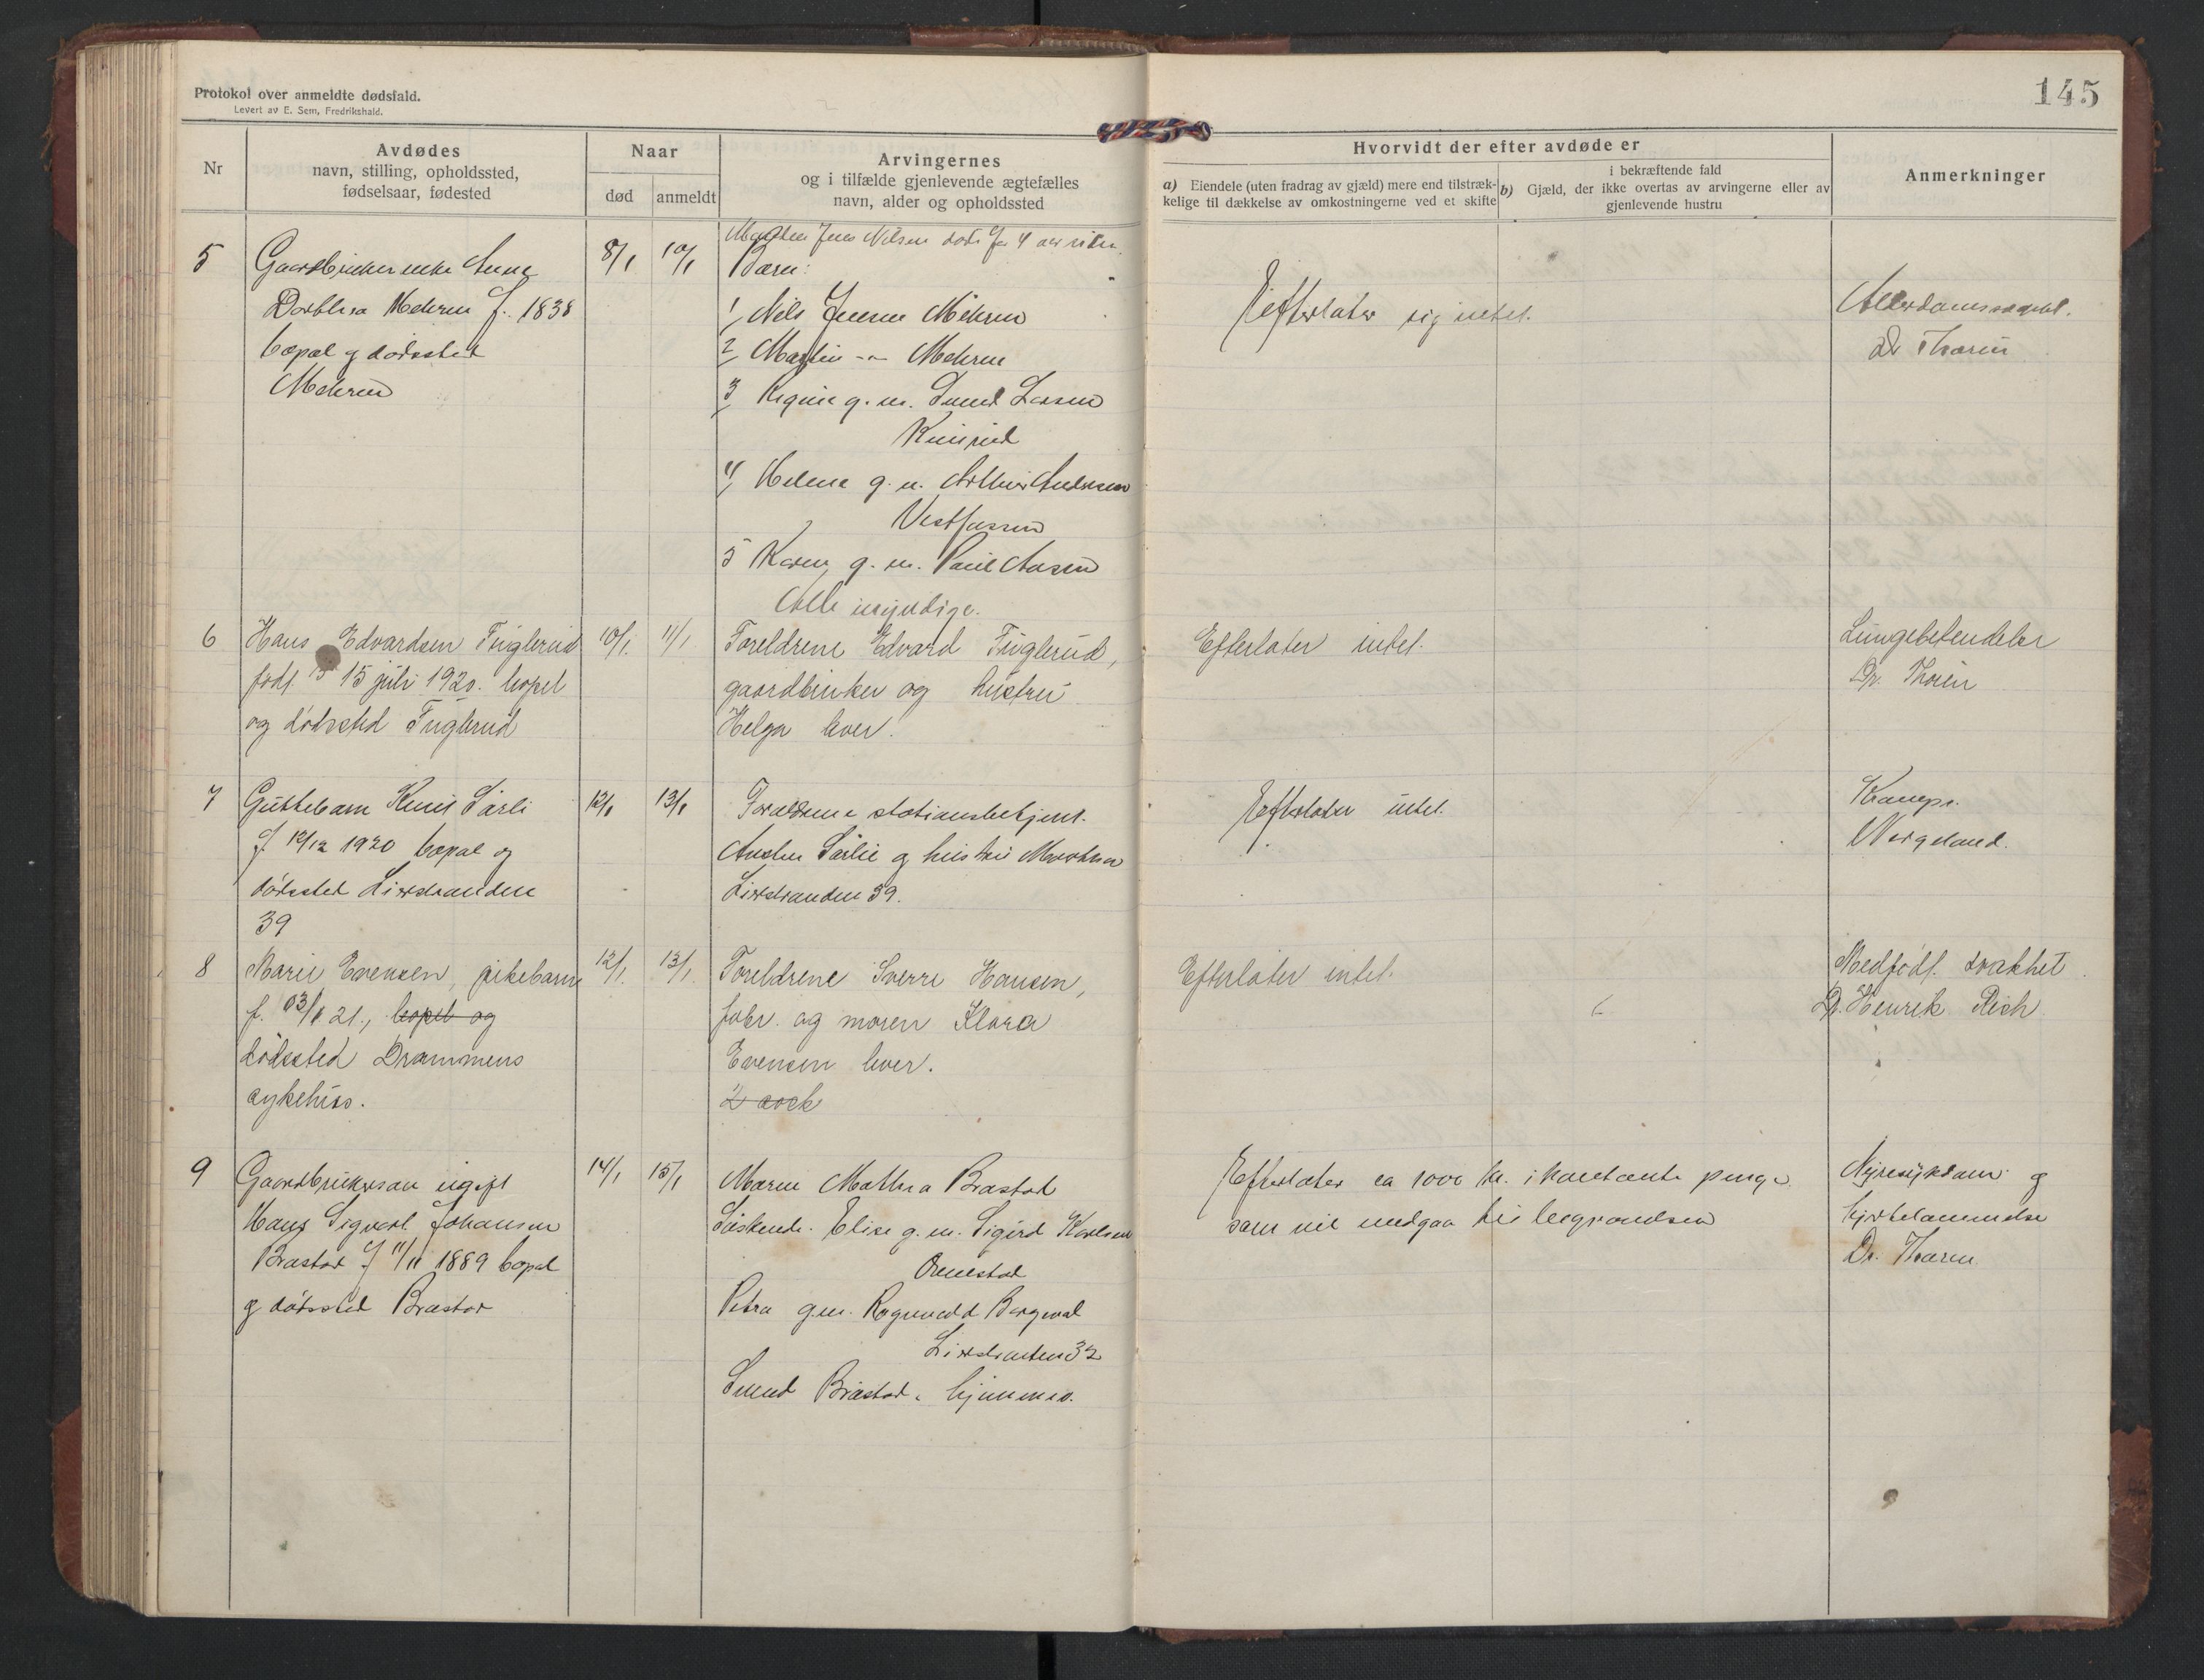 145
Protokol over anmeldte dødsfald.
Levert av E. Sem, Fredrikshald.
Nr
Avdødes
navn, stilling, opholdssted,
fødselsaar, fødested
Naar
død
anmeldt
Arvingernes
og i tilfælde gjenlevende ægtefælles
navn, alder og opholdssted
Hvorvidt der efter avdøde er
a) Eiendele (uten fradrag av gjæld) mere end tilstræk-
kelige til dækkelse av omkostningerne ved et skifte
i bekræftende fald
b) Gjæld, der ikke overtas av arvingerne eller av
gjenlevende hustru
Anmerkninger
5
Gaardbruker enke Anne
Dorthea Mehren f. 1838
bopæl og dødssted
Mehren
8/1
10/1
Jens Nilsen døde for 4 aar siden.
Barn:
1, Nils Jensen Mehren
2, Martin -"- Mehren
3, Regine g. m. Svend Larsen
4, Helene g. m. Arthur Andersen
Vestfossen
5 Karen g. m. Paul Aasen
Alle myndige.
Efterlater sig intet.
Alderdomssvakh.
Dr Thorén
6
Hans Edvardsen Fuglerud
født 15 juli 1920. bopæl
og dødssted Fuglerud
10/1.
11/1
Foreldrene Edvard Fuglerud,
gaardbruker og hustru
Helga lever.
Efterlater intet.
Lungebetendelse
Dr. Thorén
7
Guttebarn Knut Sørli
f 12/12 1920 bopæl og
dødssted Lierstranden
39
12/1
13/1
Foreldrene stationsbetjent
Anders Sørlie og hustru Martha
Lierstranden 39.
Efterlater intet.
Krampe.
Wergeland.
8
Marie Evensen, pikebarn
f. 03/1 21., bopel og
dødssted Drammens
sykehus.
12/1.
13/1.
Foreldrene Sverre Hansen,
fabr. og moren Klara
Evensen lever.
Efterlater intet.
Medfødt svakhet.
Dr. Henrik Rich
9
Gaardbrukersøn ugift
Hans Sigvart Johansen
Brastad f 11/11 1889 bopæl
og dødssted Brastad
14/1
15/1
Moren Mathea Brastad
Søskende. Elise g. m. Sigurd Karlsen
Petra g.m. Rognvald Bergwal
Lierstranden 32
Svend Brastad, hjemme.
Efterlater ca 1000 kr. i kontante penge
som vil medgaa til begravelsen
Nyresygdom og
hjertelammelse
Dr. Thorén.